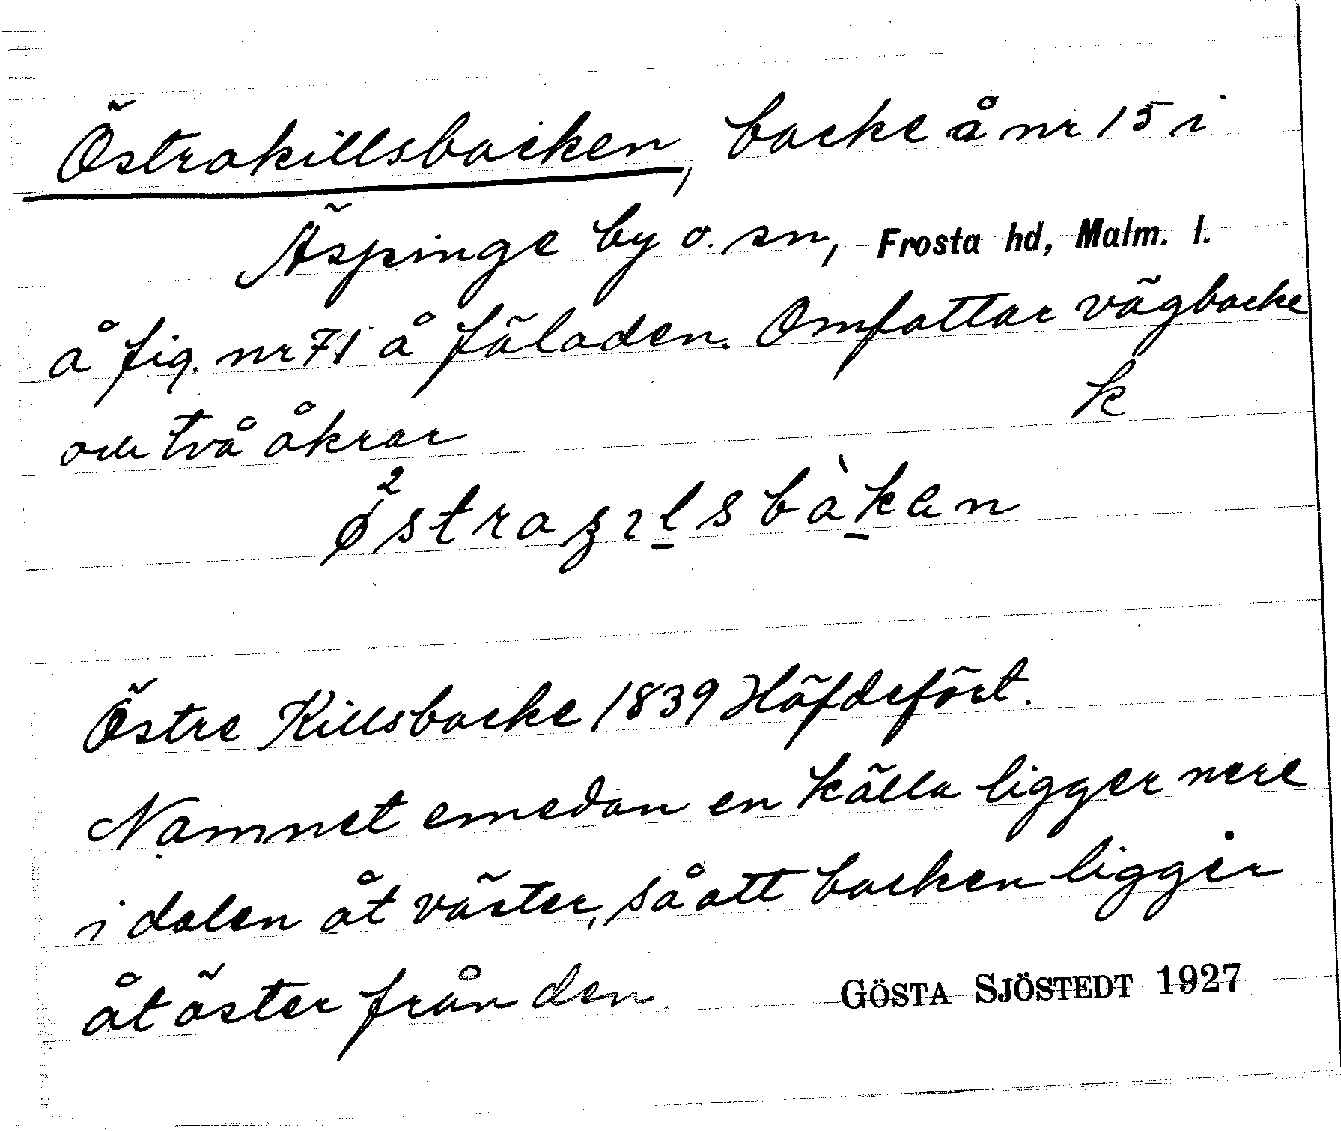 Östrakillsbacken, backe å nr 15 i
Äspinge by o. sn, Frosta hd, Malm. l.
å fig. nr 71 å fäladen. Omfattar vägbacke
och två åkrar
k
Östre Killsbacke 1839 Höfdefört.
Namnet emedan en källa ligger nere
i dalen åt väster, så att backen ligger
åt öster från den.
GÖSTA SJÖSTEDT 1927